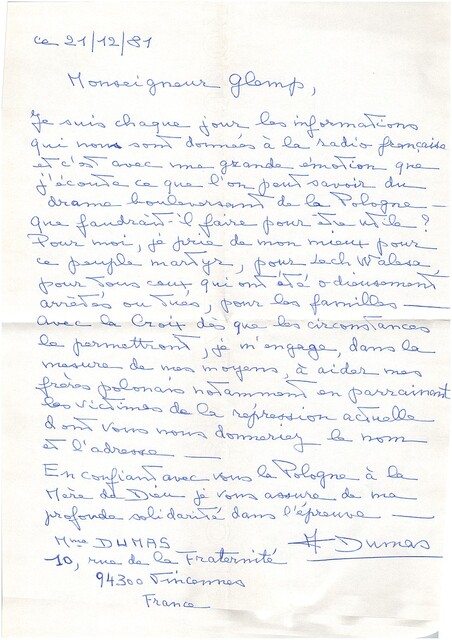 ce 21/12/81
Monseigneur Glemp,
Je suis chaque jour les informations
qui nous sont données à la radio française
et c'est avec une grande émotion que
j'écoute ce que l'on peut savoir du
drame bouleversant de la Pologne —
que faudrait-il faire pour être utile ?
Pour moi, je prie de mon mieux pour
ce peuple martyr, pour Lech Walesa,
pour tous ceux qui ont été odieusement
arrêtés ou tués, pour les familles —
Avec la Croix dès que les circonstances
le permettront, je m'engage, dans la
mesure de mes moyens, à aider mes
frères polonais notamment en parrainant
les victimes de la répression actuelle
dont vous nous donneriez le nom
et l'adresse —
En confiant avec vous la Pologne à la
Mère de Dieu je vous assure de ma
profonde solidarité dans l'épreuve —
Mme DUMAS Dumas
10, rue de la Fraternité
94300 Vincennes
France